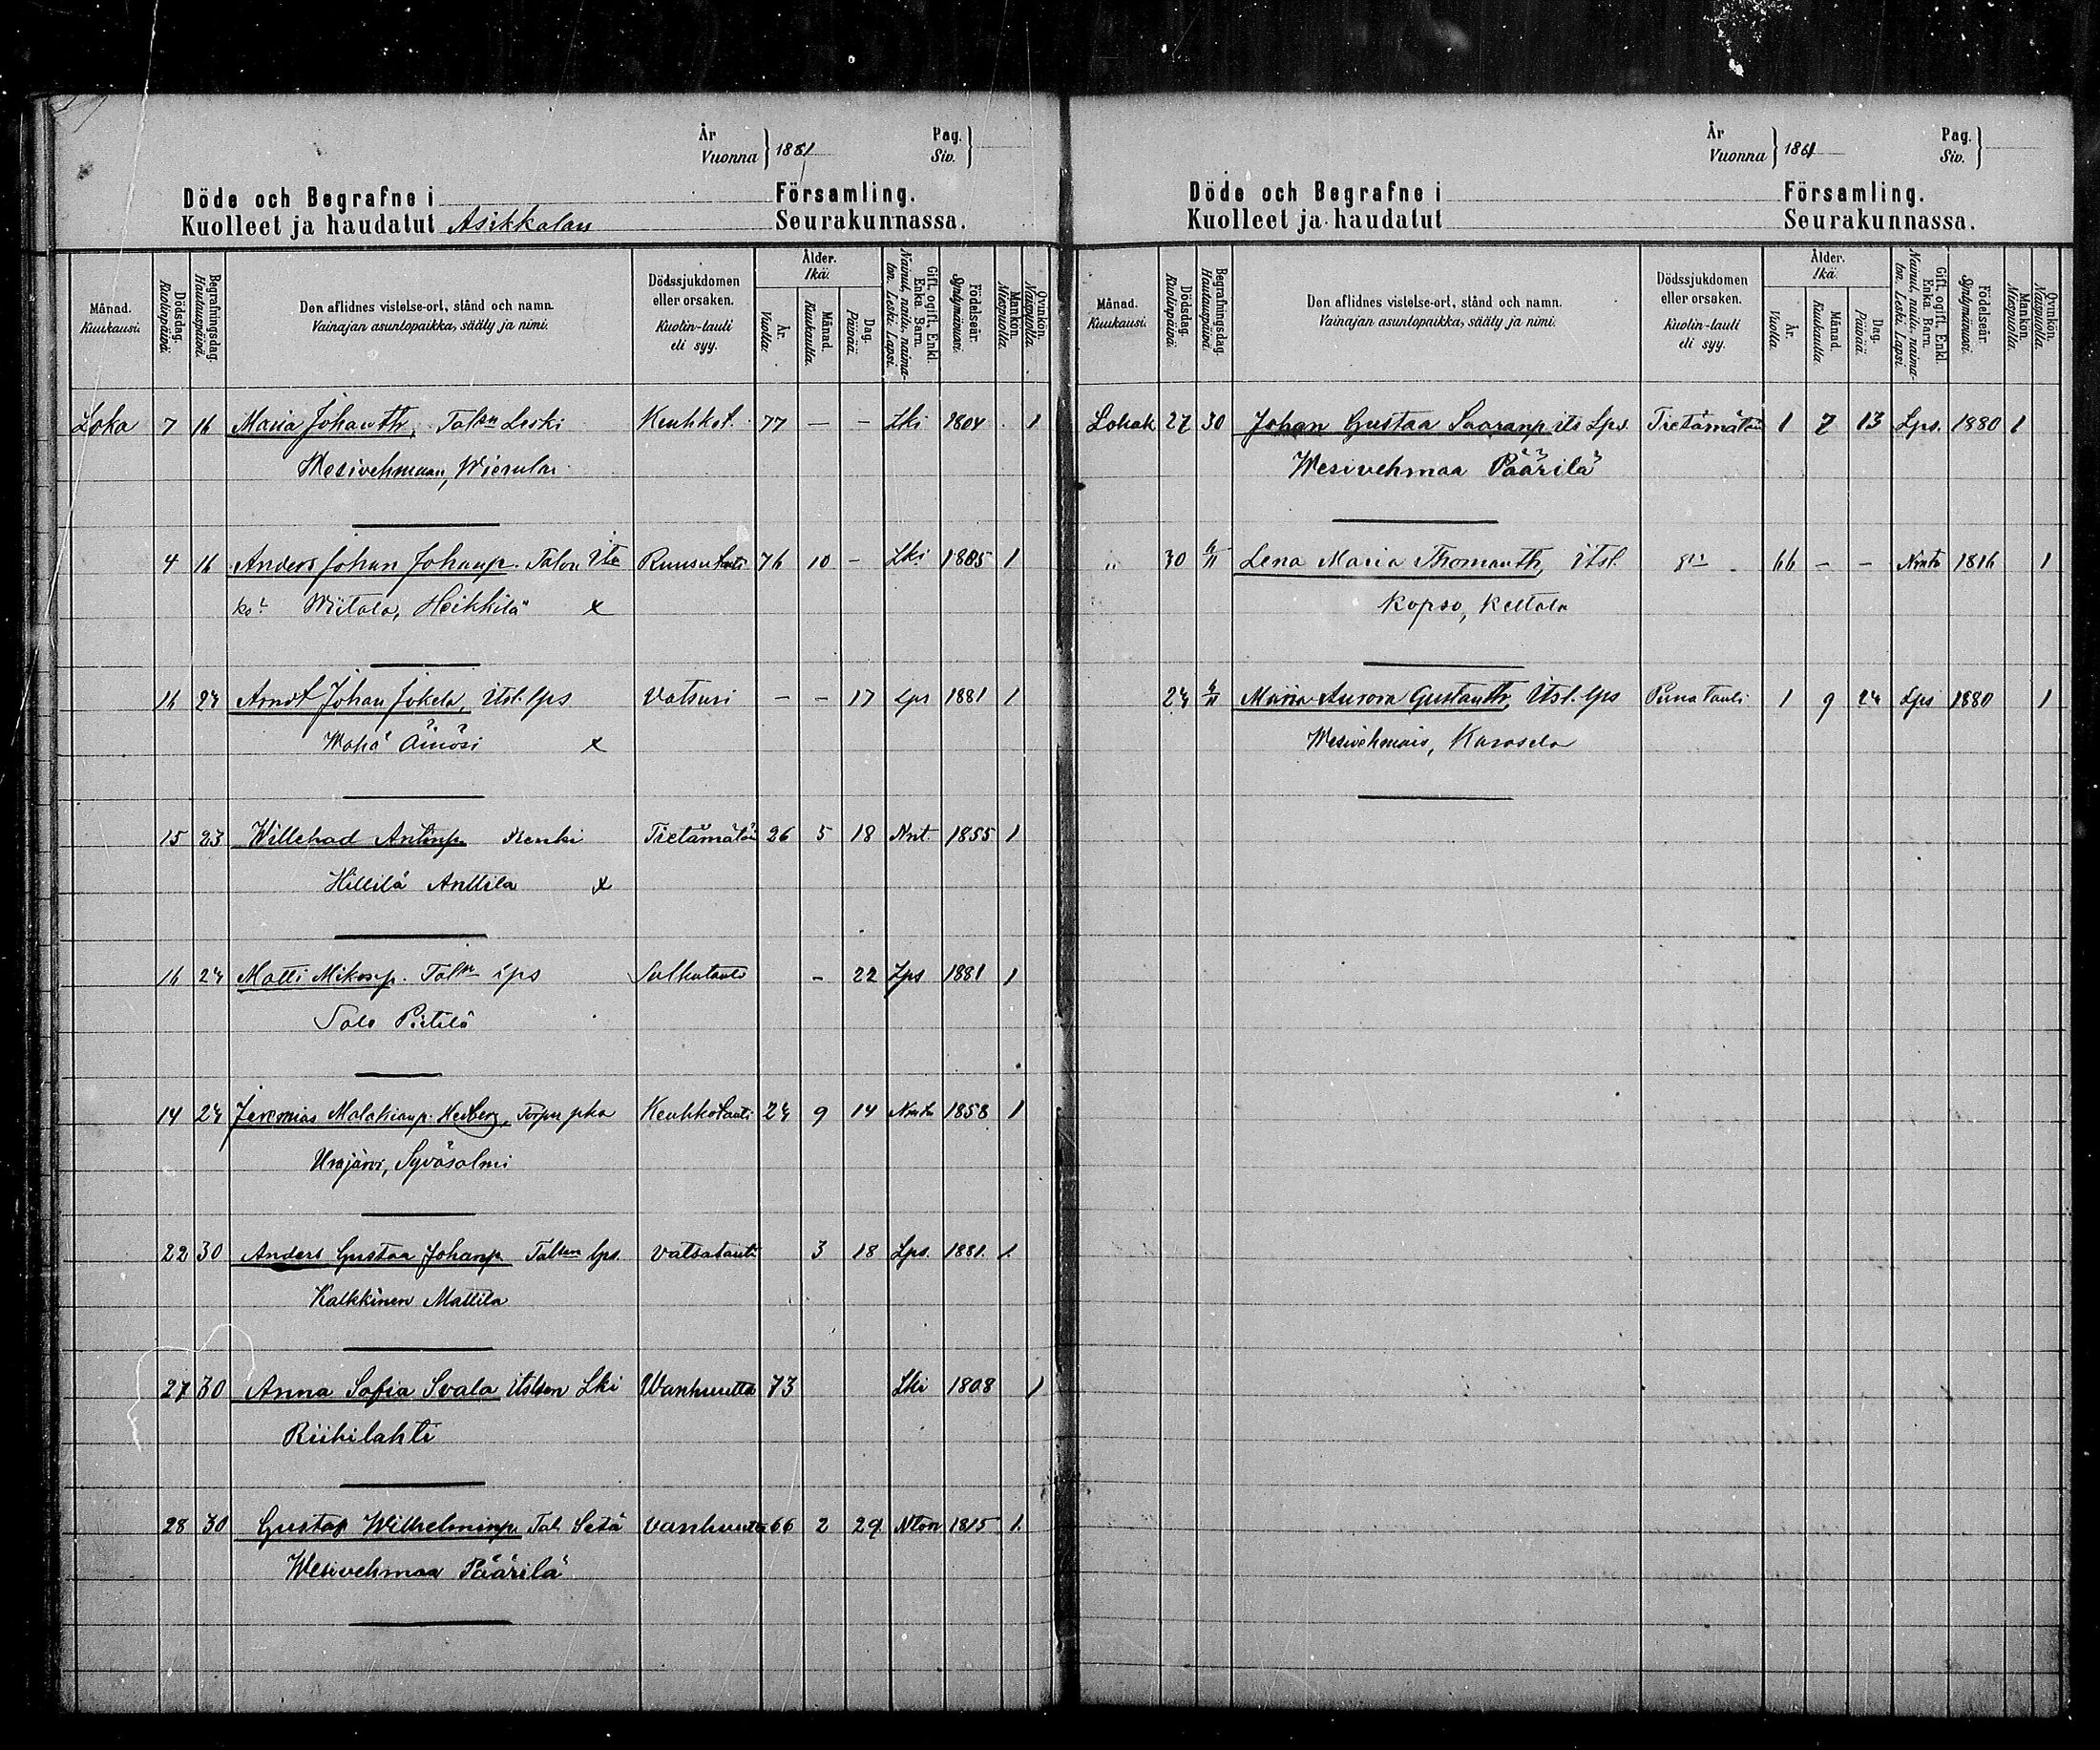 År
Vuonna } 1881
Pag.
Siv. }
Döde och Begrafne i Församling.
Kuolleet ja haudatut Asikkalan Seurakunnassa.
Månad. Kuukausi.
Dödsdag. Kuolinpäivä.
Begrafningsdag. Hautauspäivä.
Den aflidnes vistelse-ort, stånd och namn.
Vainajan asuntopaikka, sääty ja nimi.
Dödssjukdomen eller orsaken.
Kuolin-tauti eli syy.
Ålder. Ikä.
År. Vuotta.
Månad. Kuukautta.
Dag. Päivää.
Gift, ogift, Enkl. Enka. Barn.
Nainut, naitu, naima-
ton. Leski. Lapsi.
Födelseår. Syntymävuosi.
Mankön. Miespuolia.
Qvinkön. Naispuolia.
Loka 7 16 Maria Johantr, Talon Leski Keuhkot. 77 — — Lki 1804 1
Wesivehmaan, Wierula
4 16 Anders Johan Johanp. Talon Ruusutauti 76 10 - Lki 1805 1
Wiitala, Heikkilä x
16 24 Arndt Johan Jokela, Itsl. lps Vatsuri - - 17 Lps 1881 1
Wähä Äiniö x
15 23 Willehad Antinp. Renki Tietämätön 26 5 18 Nnt. 1855 1
Hillilä Anttila x
16 24 Matti Mikonp. Taln lps - 22 Lps 1881 1
Salo Pietilä
14 24 Jeremias Malakianp. Torpn pka Keuhkotauti 24 9 14 1858 1
Urajärvi, Syväsalmi
22 30 Anders Gustaa Johanp. Talon lps. Vatsatauti 3 18 Lps. 1881. 1.
Kalkkinen Mattila
27 30 Anna Sofia Svala Itslsen Lki Wanhuutta 73 Lki 1808 1
Riihilahti
28 30 Gustaf Wilhelminp. Tal. Setä Vanhuutta 66 2 29 Nton 1815 1.
Wesivehmaa Päärilä
År
Vuonna } 1881
Pag.
Siv. }
Döde och Begrafne i Församling.
Kuolleet ja haudatut Seurakunnassa.
Månad. Kuukausi.
Dödsdag. Kuolinpäivä.
Begrafningsdag. Hautauspäivä.
Den aflidnes vistelse-ort, stånd och namn.
Vainajan asuntopaikka, sääty ja nimi.
Dödssjukdomen eller orsaken.
Kuolin-tauti eli syy.
Ålder. Ikä.
År. Vuotta.
Månad. Kuukautta.
Dag. Päivää.
Gift, ogift, Enkl. Enka. Barn.
Nainut, naitu, naima-
ton. Leski. Lapsi.
Födelseår. Syntymävuosi.
Mankön. Miespuolia.
Qvinkön. Naispuolia.
Lokak 27 30 Johan Gustaa Saaranp its Lps. Tietämätön 1 7 13 Lps. 1880 1
Wesivehmaa Päärilä
" 30 6/11 Lena Maria Thomantr, Itsl. 66 - - 1816 1
Kopso, Keltala
24 6/11 Maria Aurora Gustantr, Itsl. lps Punatauti 1 9 24 Lps 1880 1
Wesivehmais, Karosela